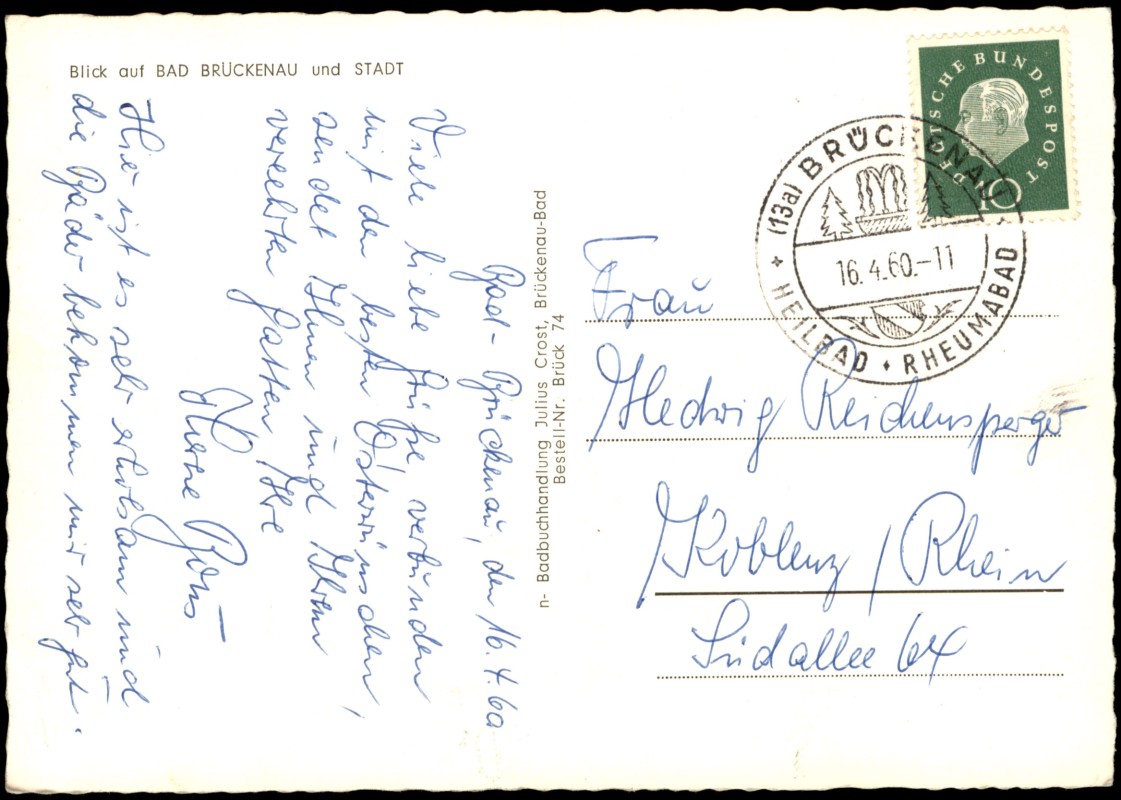 Blick auf BAD BRÜCKENAU und STADT
Bad-Brückenau, den 16.4.60
Viele liebe Grüße verbunden
mit den besten Osterwünschen,
sendet Ihnen und Ihrem
verehrten Gatten Ihre
Hier ist es sehr erholsam und
die Bäder bekommen mir sehr gut.
n- Badbuchhandlung Julius Crost, Brückenau-Bad
Bestell-Nr. Brück 74
DEUTSCHE BUNDESPOST
10
(13a) BRÜCKENAU
16.4.60.-11
HEILBAD · RHEUMABAD
Frau
Hedwig Reichensperger
Koblenz / Rhein
Südallee 64